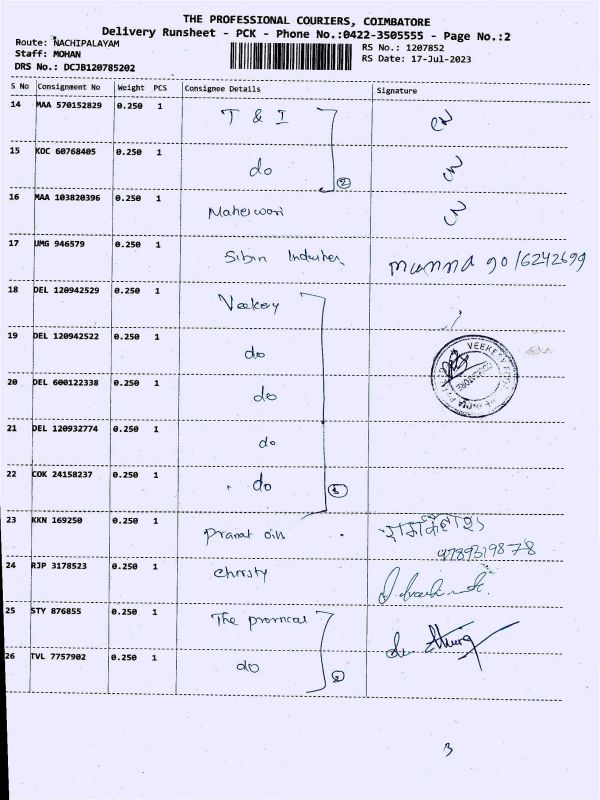 THE PROFESSIONAL COURIERS, COIMBATORE
Delivery Runsheet - PCK - Phone No.:0422-3505555 - Page No.:2
Route: NACHIPALAYAM
Staff: MOHAN
DRS No.: DCJB120785202
RS No.: 1207852
RS Date: 17-Jul-2023
S No Consignment No Weight PCS Consignee Details Signature
14 MAA 570152829 0.250 1 T & I
15 KOC 60768405 0.250 1 do 2
16 MAA 103820396 0.250 1 Maheswari
17 UMG 946579 0.250 1 Sibin munna 9016242699
18 DEL 120942529 0.250 1 Veekey
19 DEL 120942522 0.250 1 do
VEEKE
20 DEL 600122338 0.250 1 do
21 DEL 120932774 0.250 1 do
22 COK 24158237 0.250 1 do 5
23 KKN 169250 0.250 1
9789319878
24 RJP 3178523 0.250 1 Christy
25 STY 876855 0.250 1 The
26 TVL 7757902 0.250 1 do 2
3